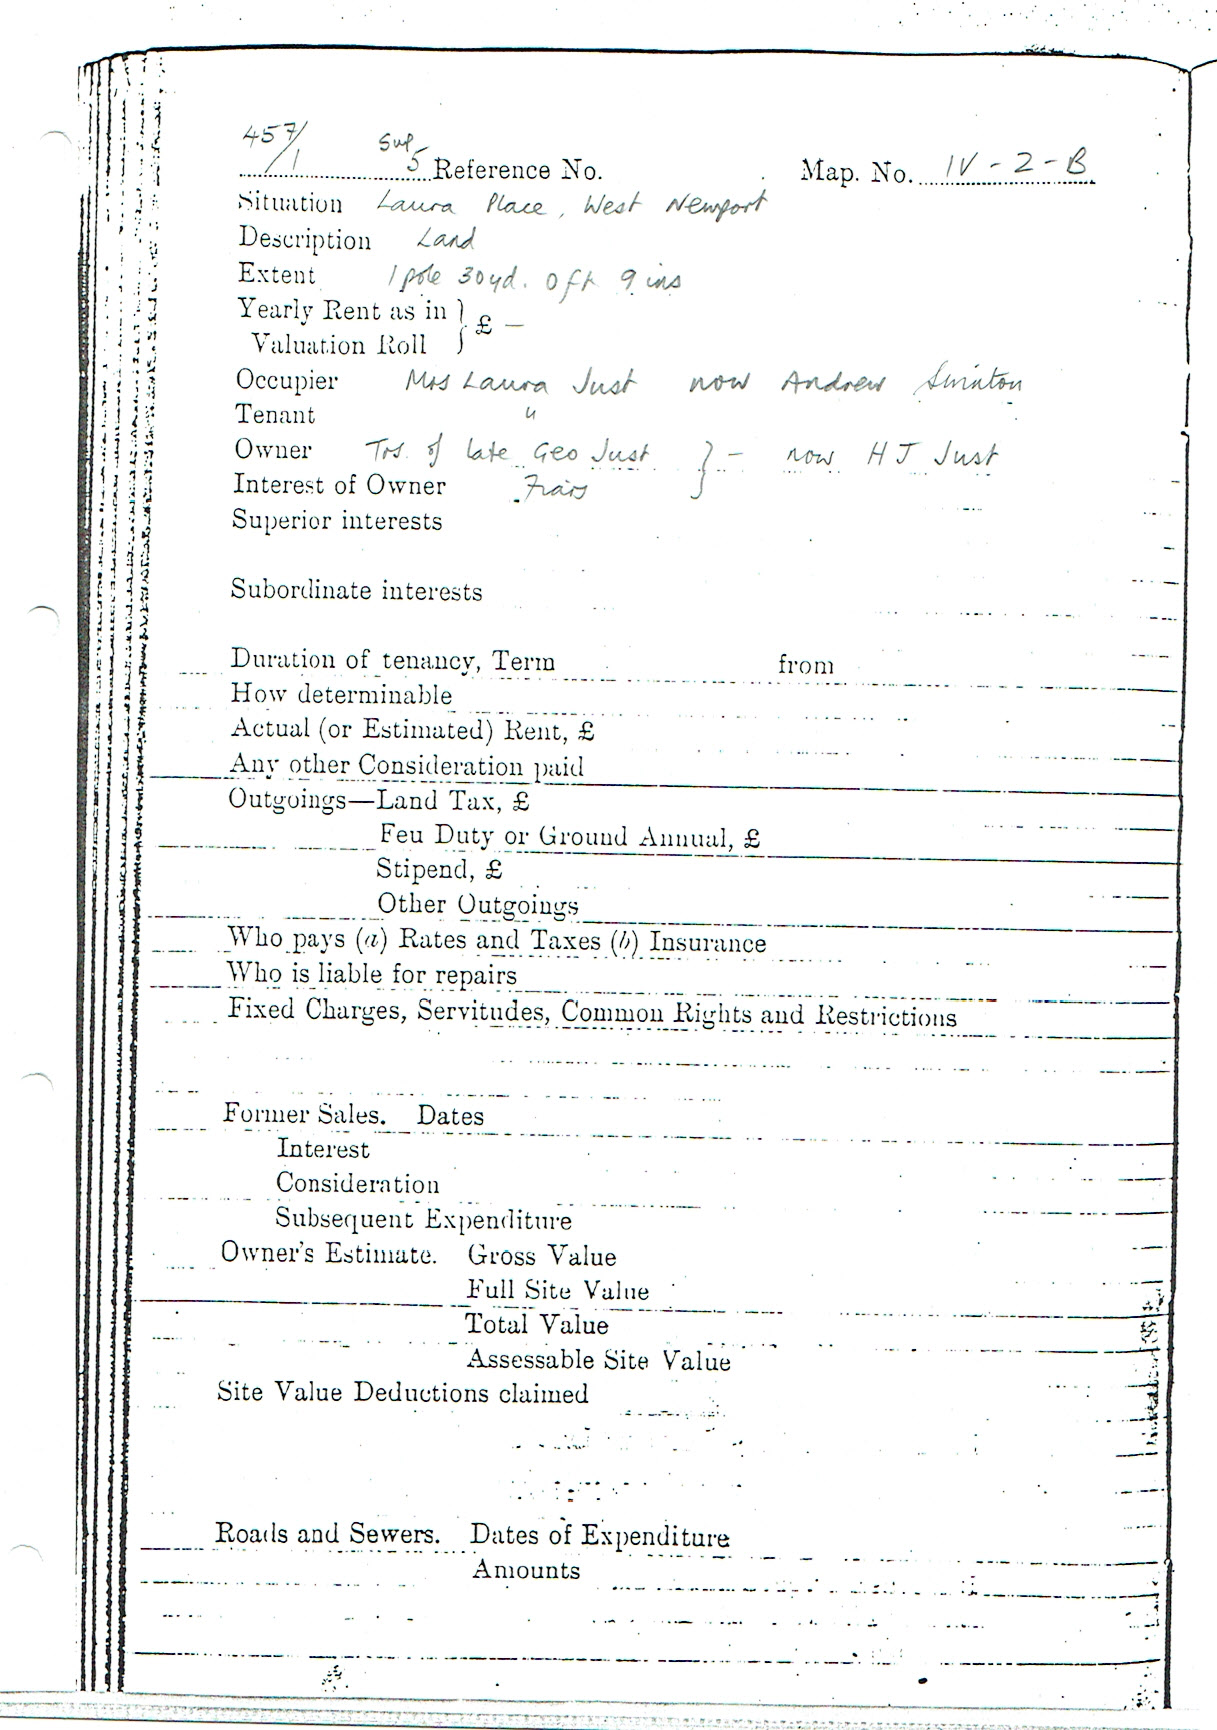 457/1 Sup 5 Reference No. Map. No. IV - 2 - B
Situation Laura Place, West Newport
Description Land
Extent 1 pole 30 yd. 0 ft 9 ins
Yearly Rent as in
Valuation Roll } £ -
Occupier Mrs Laura Just now Andrew Swinton
Tenant "
Owner Trs. of late Geo Just } - now H J Just
Interest of Owner
Superior interests
Subordinate interests
Duration of tenancy, Term from
How determinable
Actual (or Estimated) Rent, £
Any other Consideration paid
Outgoings—Land Tax, £
Feu Duty or Ground Annual, £
Stipend, £
Other Outgoings
Who pays (a) Rates and Taxes (b) Insurance
Who is liable for repairs
Fixed Charges, Servitudes, Common Rights and Restrictions
Former Sales. Dates
Interest
Consideration
Subsequent Expenditure
Owner's Estimate. Gross Value
Full Site Value
Total Value
Assessable Site Value
Site Value Deductions claimed
Roads and Sewers. Dates of Expenditure
Amounts